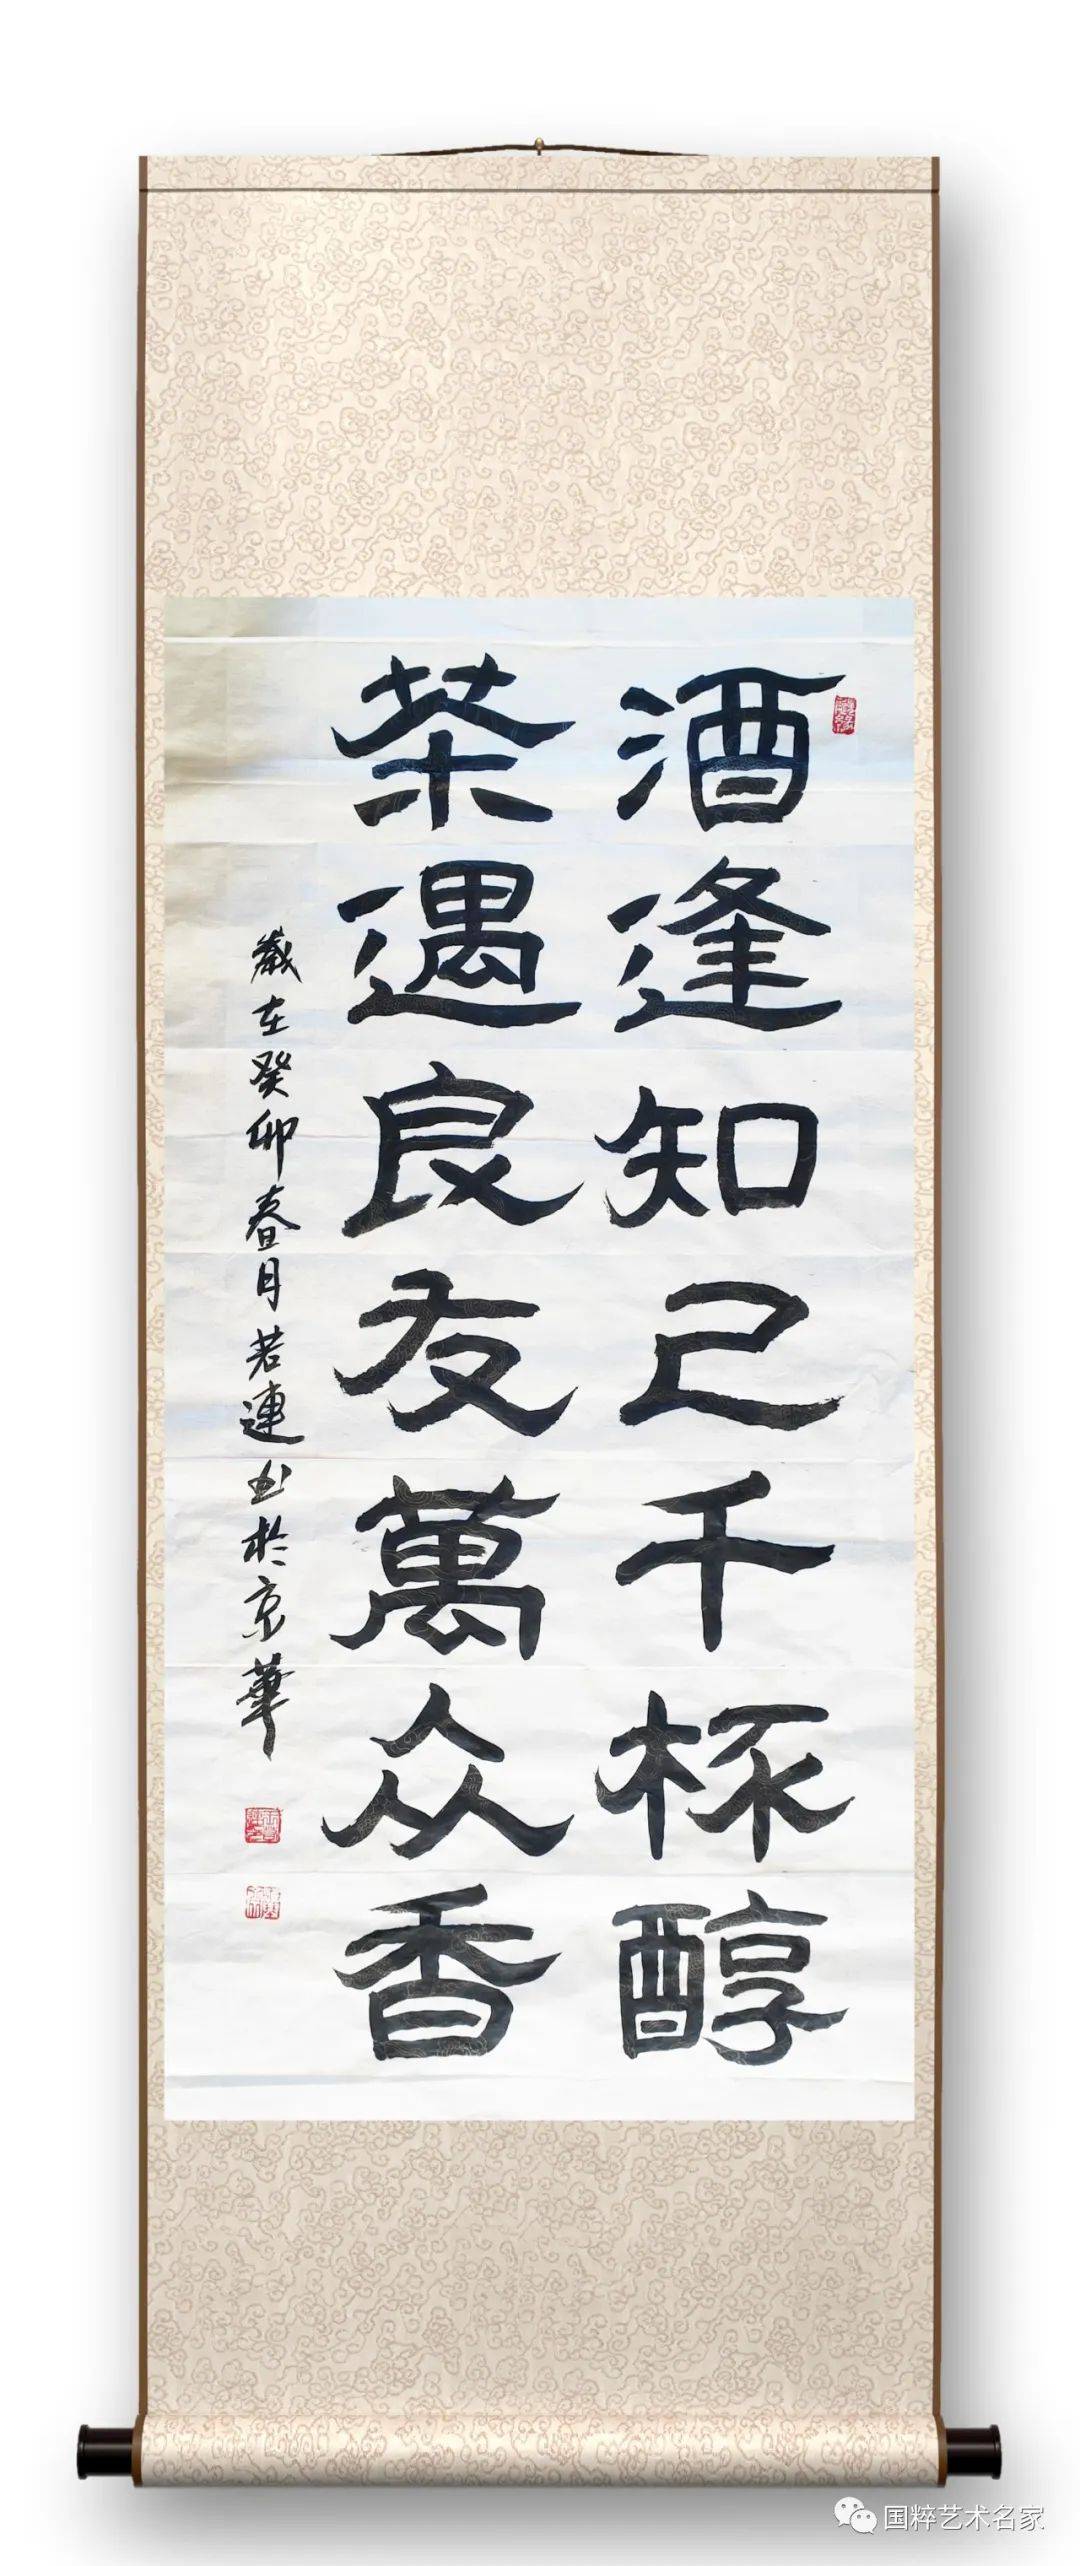 酒逢知己千杯醇
茶遇良友萬众香
歲在癸卯春月若連书於京華
国粹艺术名家